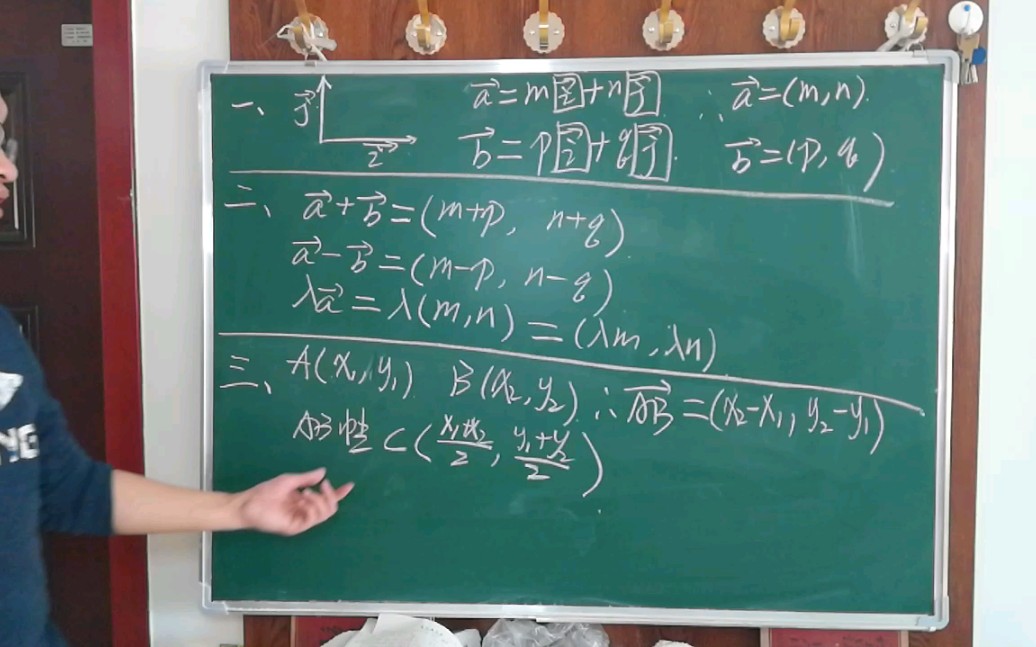 一、 j→ i→ a→=m i→+n j→ ∴ a→=(m,n).
b→=p i→+q j→. b→=(p,q)
二、 a→+b→=(m+p, n+q)
a→-b→=(m-p, n-q)
λa→=λ(m,n)=(λm,λn)
三、 A(x₁,y₁) B(x₂,y₂) ∴ AB→=(x₂-x₁, y₂-y₁)
AB中点 C((x₁+x₂)/2, (y₁+y₂)/2)